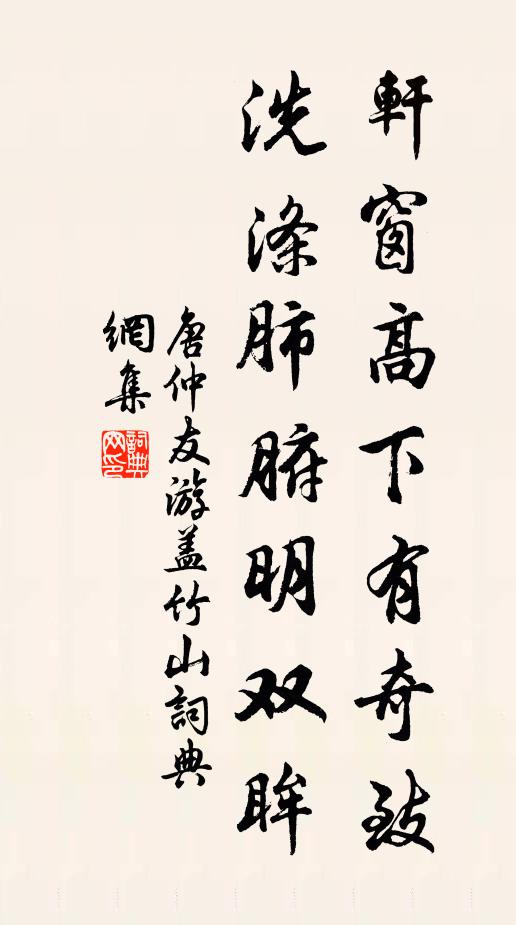 軒窗高下有奇致
洗滌肺腑明双眸
唐仲友游盖竹山詞典
網集
詞典
网印